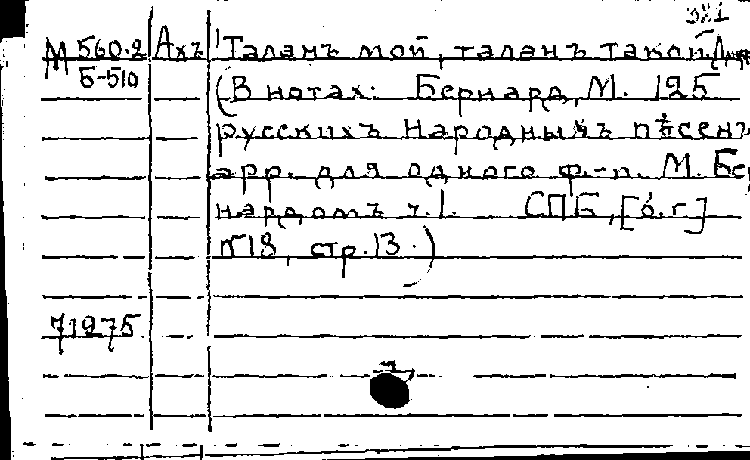 321
М 560.2 Ахъ Таланъ мой, таланъ такой
Б-510 (В нотах: Бернард, М. 125
русскихъ народныхъ пѣсенъ
арр. для одного ф.-п. М. Бер
нардомъ ч.1. СПБ, [б.г.]
№18, стр.13.)
71975